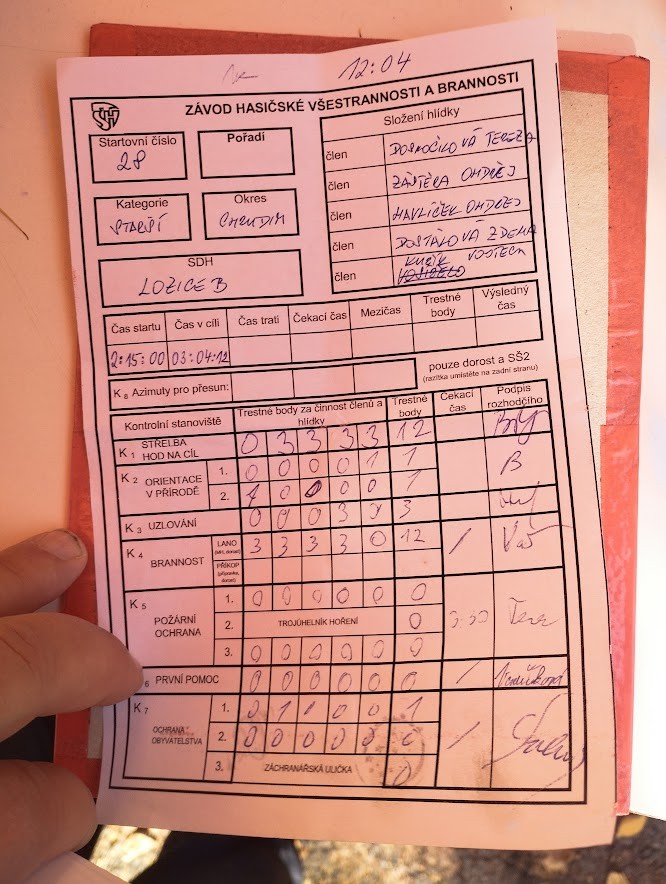 12:04
ZÁVOD HASIČSKÉ VŠESTRANNOSTI A BRANNOSTI
Startovní číslo
28
Pořadí
Složení hlídky
člen DOSKOČILOVÁ TEREZA
člen ZÁSTĚRA ONDŘEJ
člen HAVLÍČEK ONDŘEJ
člen DOSTÁLOVÁ ZDENA
člen VOJTĚCH
Kategorie
STARŠÍ
Okres
CHRUDIM
SDH
LOZICE B
Čas startu Čas v cíli Čas trati Čekací čas Mezičas Trestné body Výsledný čas
2:15:00 03:04:12
K 8 Azimuty pro přesun:
pouze dorost a SŠ2
(razítka umístěte na zadní stranu)
Kontrolní stanoviště Trestné body za činnost členů a hlídky Trestné body Čekací čas Podpis rozhodčího
K 1 STŘELBA HOD NA CÍL 0 3 3 3 3 12
K 2 ORIENTACE V PŘÍRODĚ
1. 0 0 0 0 1 1 B
2. 1 0 0 0 0 1
K 3 UZLOVÁNÍ 0 0 0 3 3
K 4 BRANNOST
LANO 3 3 3 3 0 12 /
PŘÍKOP
K 5 POŽÁRNÍ OCHRANA
1. 0 0 0 0 0 0 0
2. TROJÚHELNÍK HOŘENÍ 0
3. 0 0 0 0 0 0 0
6 PRVNÍ POMOC 0 0 0 0 0 0 0 /
K 7 OCHRANA OBYVATELSTVA
1. 0 1 0 0 0 1
2. 0 0 0 0 0 0 /
3. ZÁCHRANÁŘSKÁ ULIČKA 0